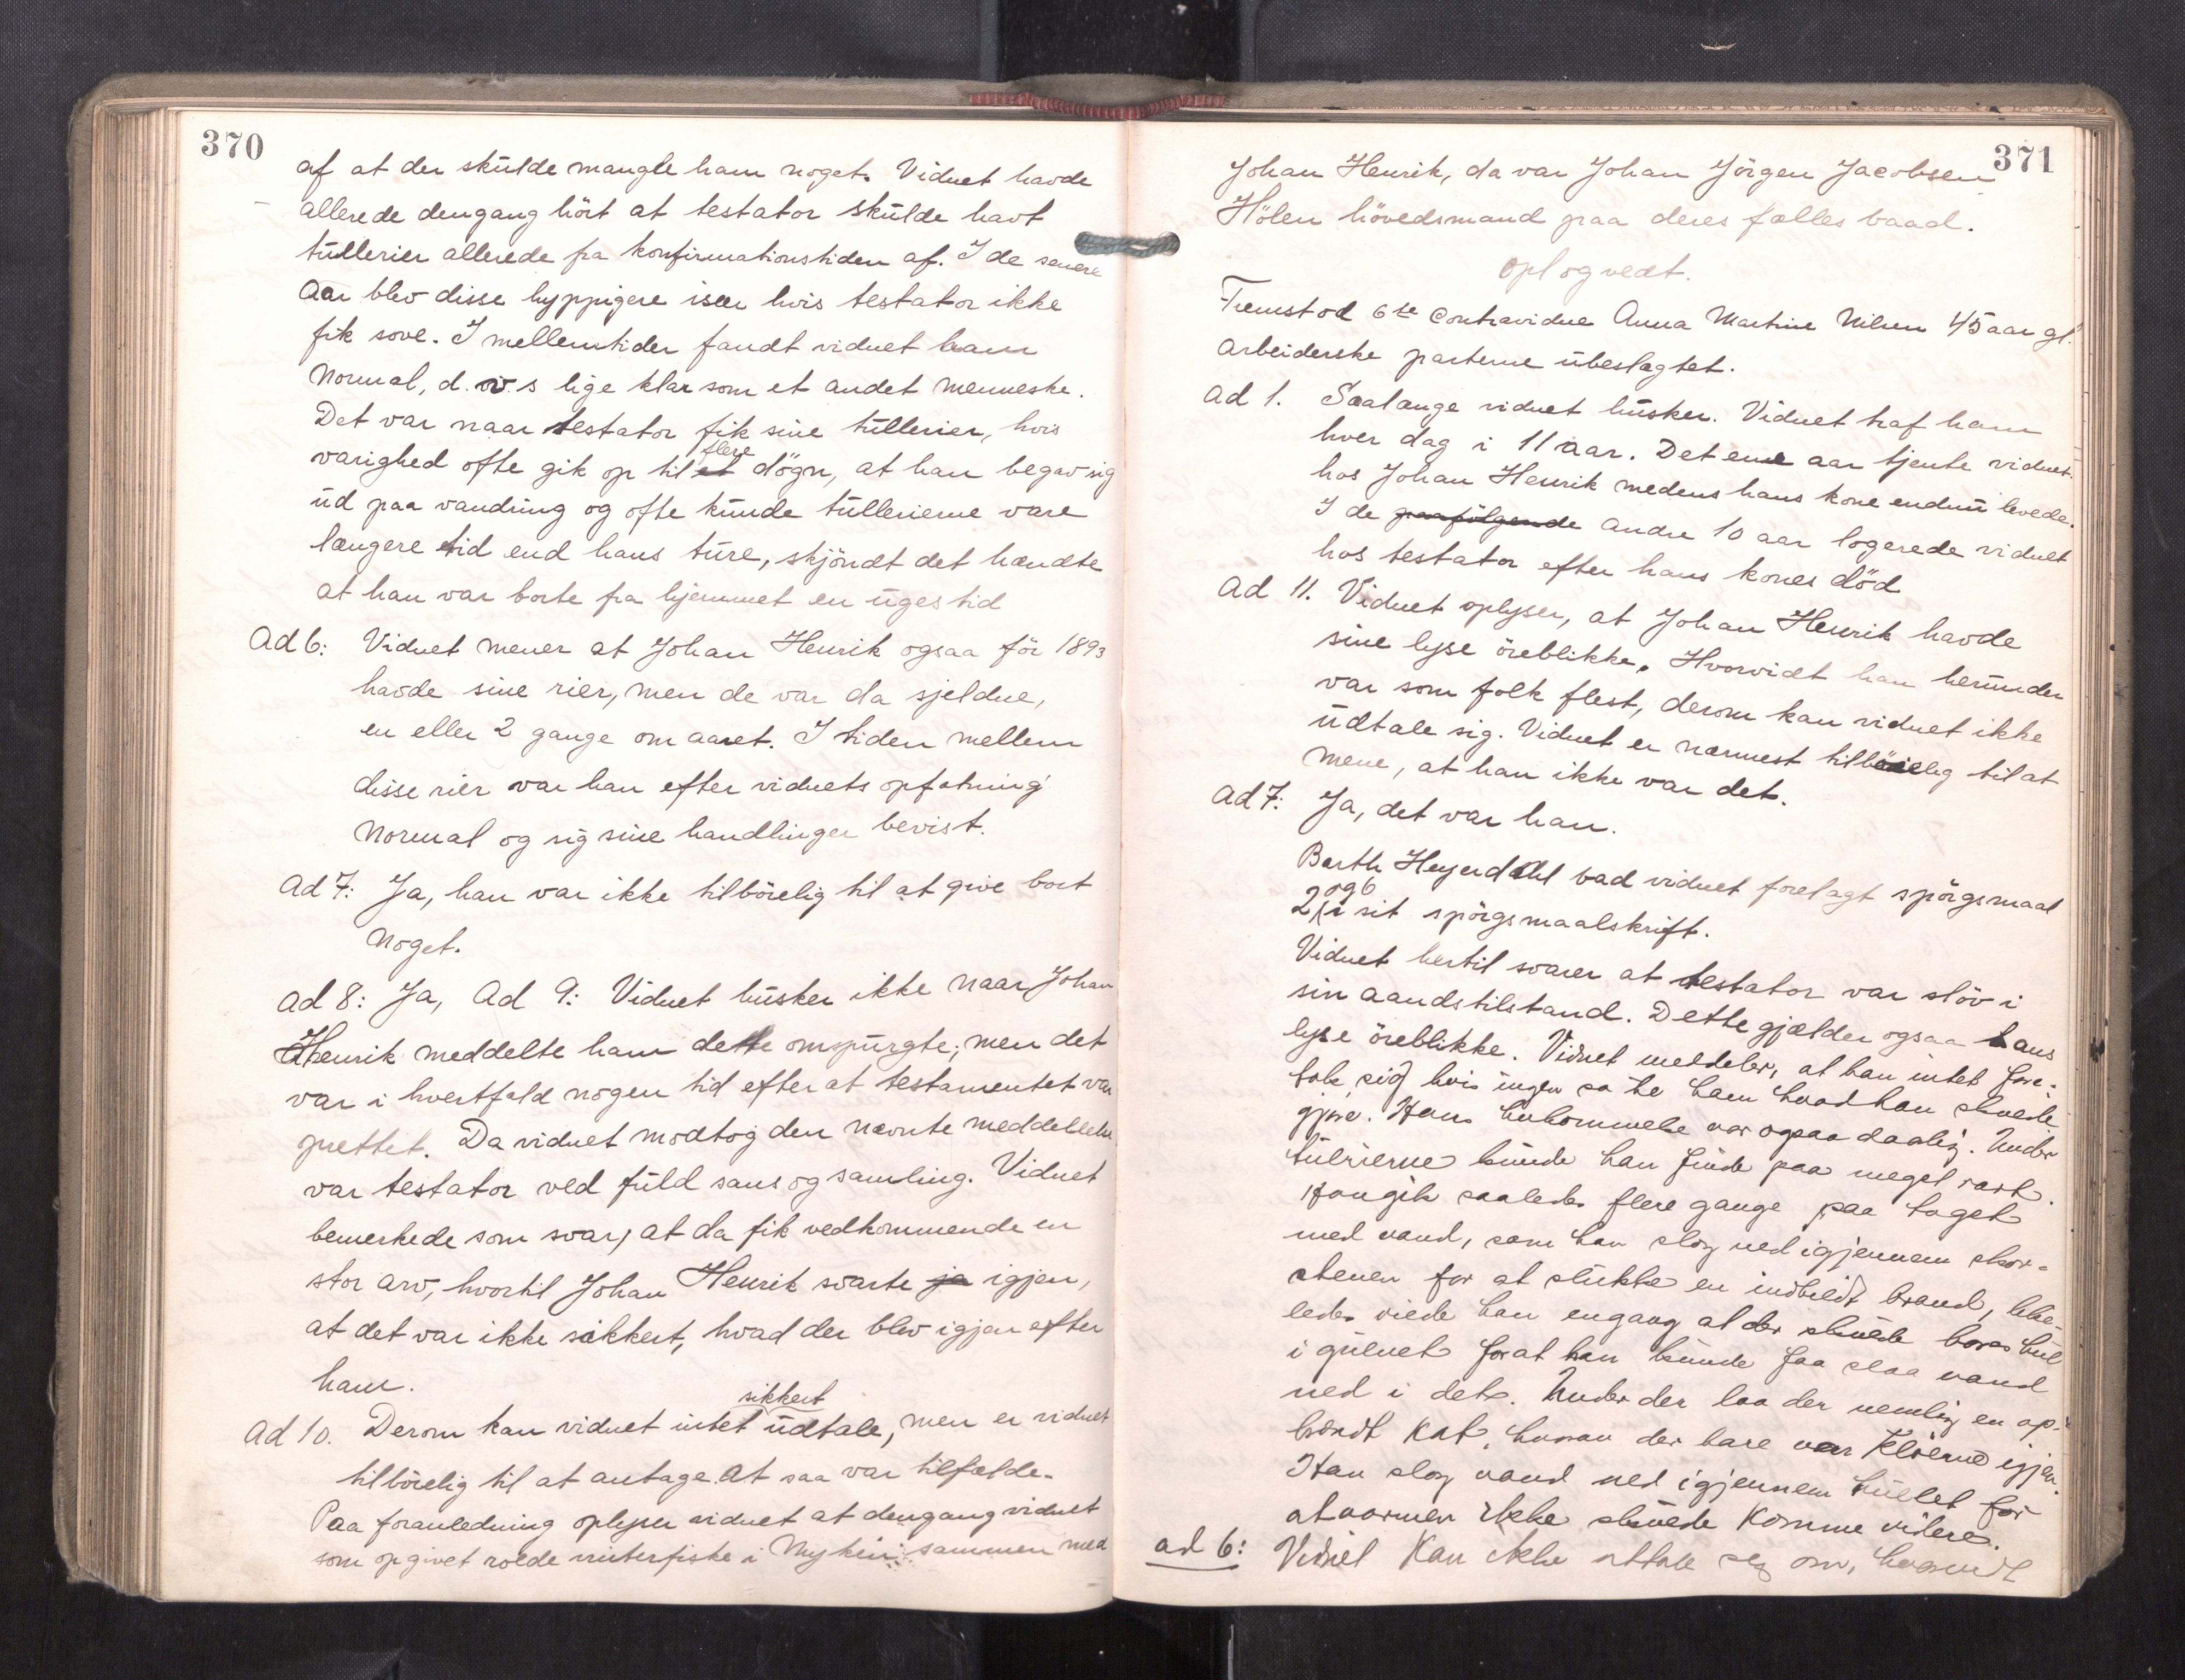 370
af at der skulde mangle ham noget. Vidnet havde
allerede dengang hört at testator skulde havt
tullerier allerede fra konfirmationstiden af. I de senere
Aar blev disse hyppigere især hvis testator ikke
fik sove. I mellemtider fandt vidnet ham
Normal, d. v. s lige klar som et andet menneske.
Det var naar testator fik sine tullerier, hvis
flere
varighed ofte gik op til et dögn, at han begav sig
ud paa vandring og ofte kunde tullerierne vare
længere tid end hans ture, skjöndt det hændte
at han var borte fra hjemmet en uges tid
Ad 6: Vidnet mener at Johan Henrik ogsaa för 1893
havde sine rier, men de var da sjeldne,
en eller 2 gange om aaret. I tiden mellem
disse rier var han efter vidnets opfatning
Normal og sig sine handlinger bevist.
Ad 7: Ja, han var ikke tilböielig til at give bort
Noget.
Ad 8: Ja, Ad 9: Vidnet husker ikke naar Johan
Henrik meddelte ham dette omspurgte; men det
var i hvertfald nogen tid efter at testamentet var
prettet. Da vidnet modtog den nævnte meddelelse
var testator ved fuld sans og samling. Vidnet
bemerkede som svar, at da fik vedkommende en
stor arv, hvortil Johan Henrik svarte ja igjen,
at det var ikke sikkert, hvad der blev igjen efter
ham.
sikkert
Ad 10. Derom kan vidnet intet udtale, men er vidnet
tilböielig til at antage at saa var tilfælde.
Paa foranledning oplyser vidnet at dengang vidnet
som opgivet roede vinterfiske i Myken sammen med
371
Johan Henrik, da var Johan Jörgen Jacobsen
Hölen hövedsmand paa deres fælles baad.
Opl og vedt.
Fremstod 6te Contravidne Anna Martine Nilsen 45 aar gl.
Arbeiderske parterne ubeslægtet.
Ad 1. Saalænge vidnet husker. Vidnet traf ham
hver dag i 11 aar. Det ene aar tjente vidnet
hos Johan Henrik medens hans kone endnu levede.
I de paafölgende andre 10 aar logerede vidnet
hos testator efter hans kones död
Ad 11. Vidnet oplyser, at Johan Henrik havde
sine lyse öieblikke. Hvorvidt han herunder
var som folk flest, derom kan vidnet ikke
udtale sig. Vidnet er nærmest tilböielig til at
mene, at han ikke var det.
Ad 7: Ja, det var han.
Barth Heyerdahl bad vidnet forelagt spörgsmaal
og 6
2 i sit spörgsmaalskrift.
Vidnet hertil svarer at testator var slöv i
sin aandstilstand. Dette gjælder ogsaa hans
lyse öieblikke. Vidnet meddeler, at han intet fore-
tok sig hvis ingen sa te ham hvad han skulde
gjøre. Hans hukommelse var ogsaa daalig. Under
tullrierne kunde han finde paa meget rart.
Han gik saaledes flere gange paa taget
med vand, som han slog ned igjennem skor-
stenen for at slukke en indbildt brand, like-
ledes viede han engang at der skulde bores hul
i gulvet forat han kunde faa slaa vand
ned i det. Under der laa der nemlig en op-
brændt kat, hvorav der bare var Klörne igjen.
Han slog vand ned igjennem hullet for
at varmen ikke skulde komme videre.
ad 6: Vidnet kan ikke uttale seg om, hvorvidt